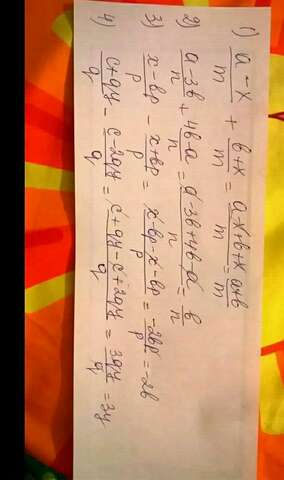 1) (a-x)/m + (b+x)/m = (a-x+b+x)/m = (a+b)/m
2) (a-3b)/n + (4b-a)/n = (a-3b+4b-a)/n = b/n
3) (x-bp)/p - (x+bp)/p = (x-bp-x-bp)/p = -2bp/p = -2b
4) (c+qy)/q - (c-2qy)/q = (c+qy-c+2qy)/q = 3qy/q = 3y